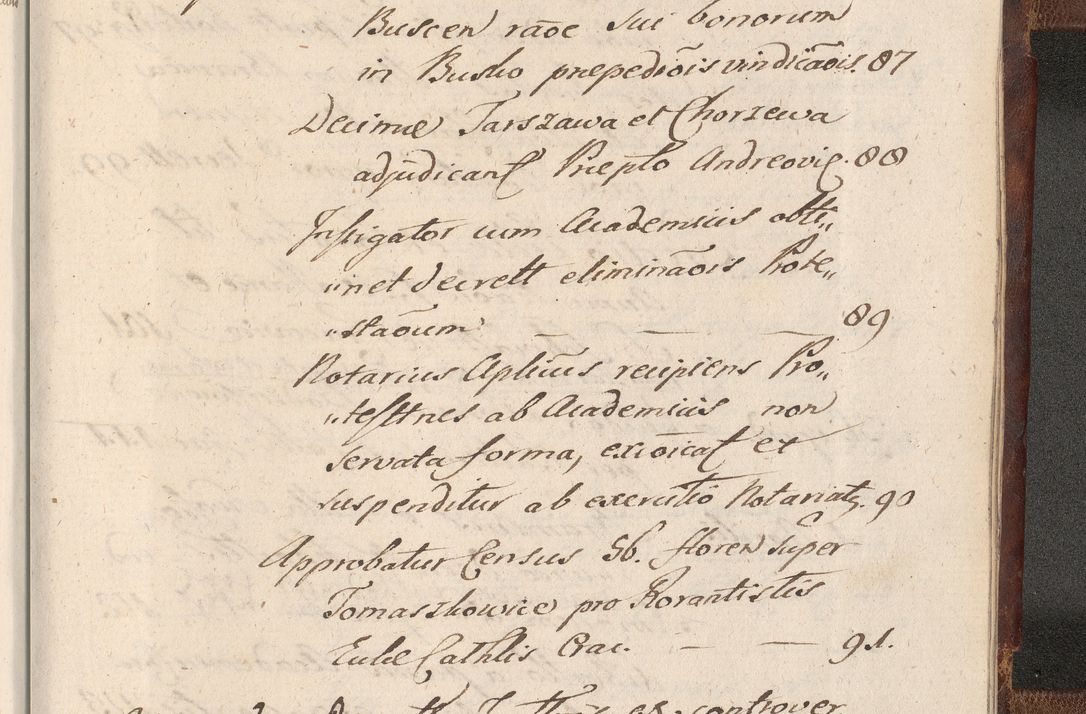 Buscen raõe sui bonorum
in Busko præpediõis vindicãois. 87
Decimæ Tarszawa et Chorzewa
adjudican Præpto Andreovie. 88
Instigator cum Academicis obti„
„net decrett eliminãois Prote„
„staõum — — — 89
Notarius Aplicus recipiens Pro„
„testtnes ab Academicis non
servata forma, exõicat et
suspenditur ab executiõ Notariatq. 90
Approbatur Census 56. floren super
Tomaszkowice pro Rorantistis
Eccle Cathlis Crac. — — 91.
controver